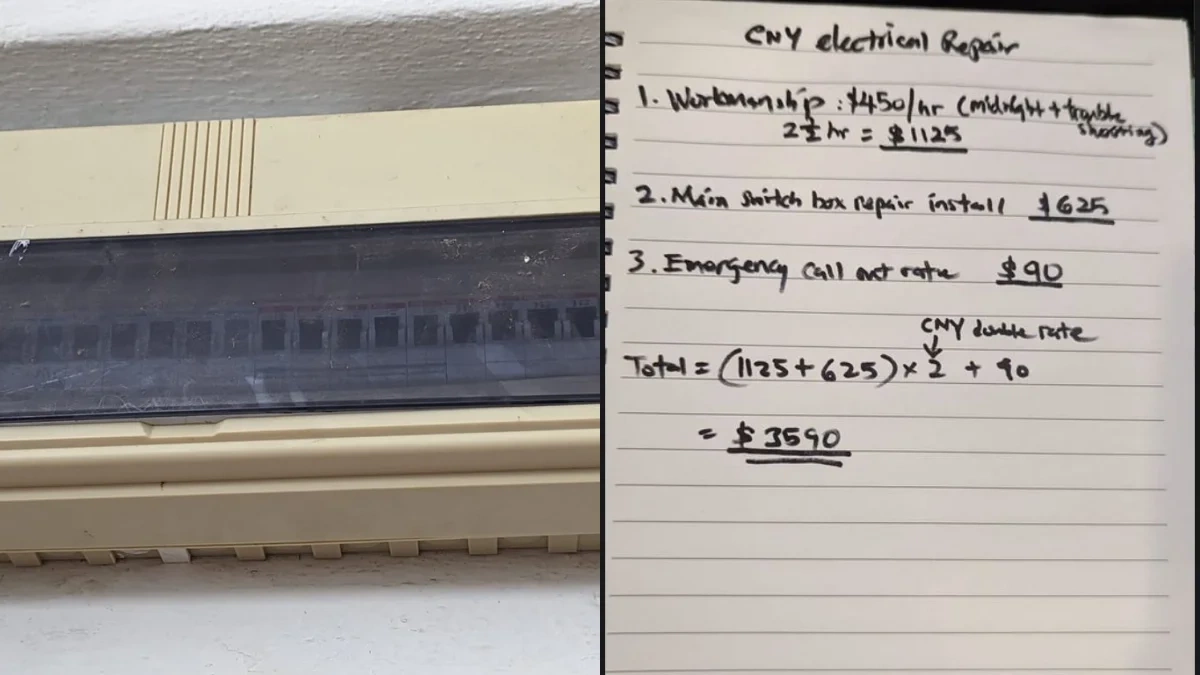 CNY electrical Repair
1. Workmanship : $450/hr (midnight + trouble
shooting)
2½ hr = $1125
2. Main switch box repair install $625
3. Emergency call out rate $90
CNY double rate
Total = (1125 + 625) × 2 + 90
= $3590